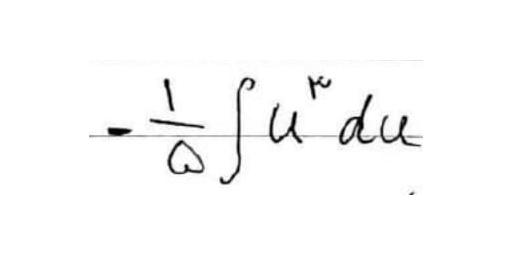 -۱/۵ ∫ u^۳ du